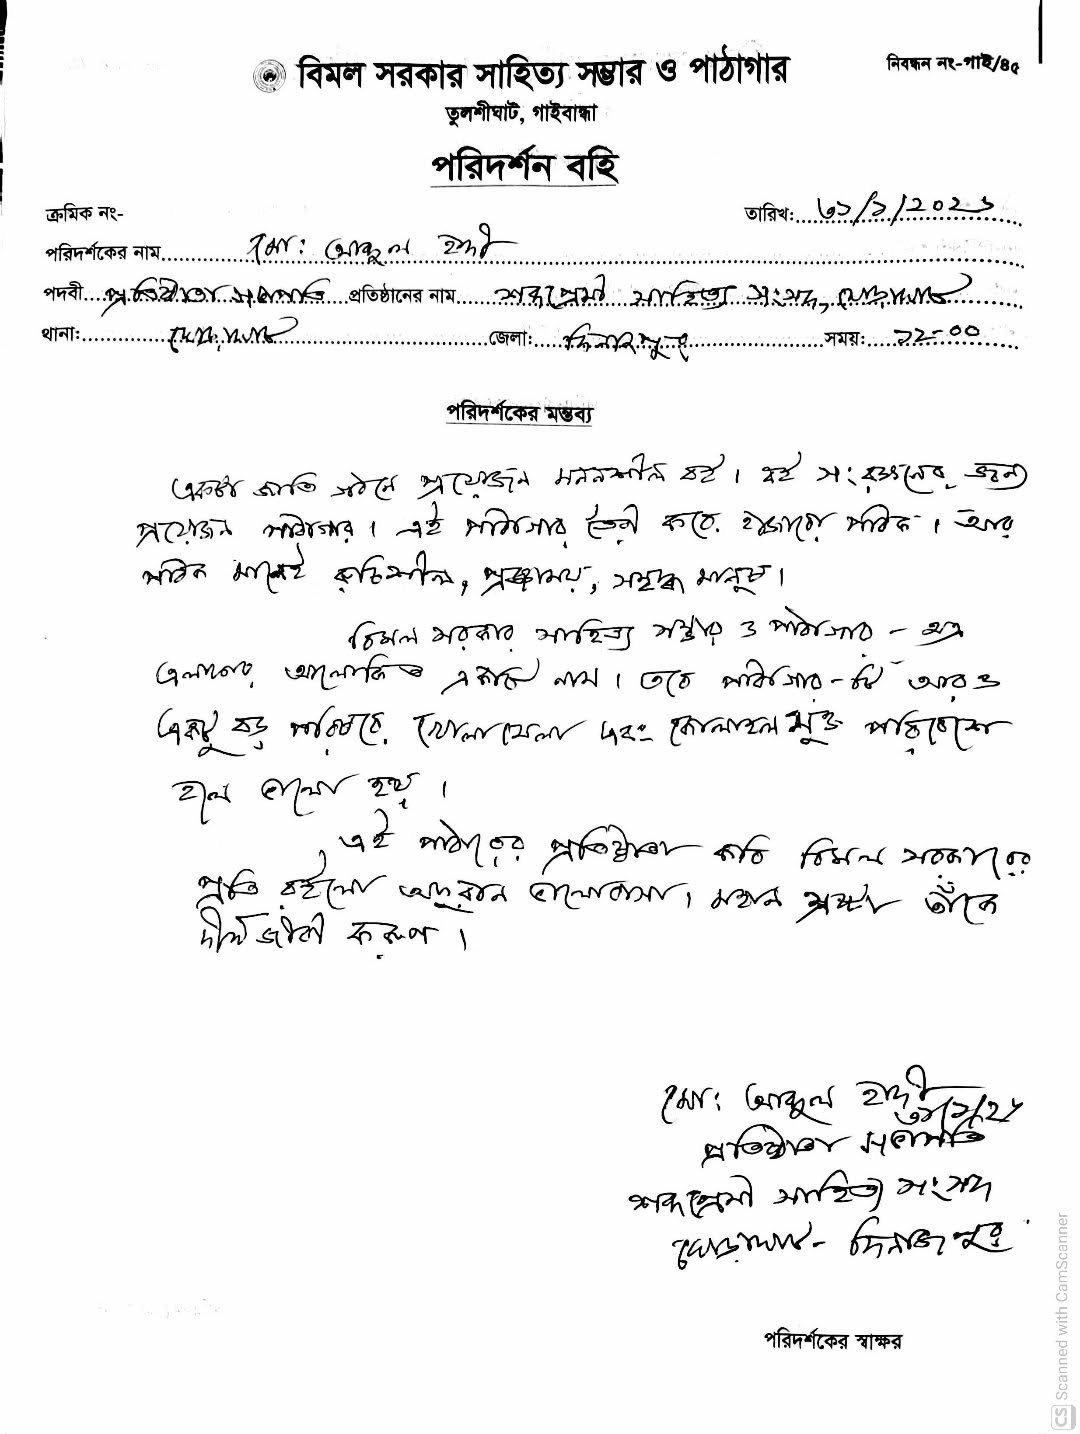 বিমল সরকার সাহিত্য সম্ভার ও পাঠাগার
নিবন্ধন নং-গাই/৪৫
তুলশীঘাট, গাইবান্ধা
পরিদর্শন বহি
ক্রমিক নং-
তারিখ: ৩১/১/২০২৬
পরিদর্শকের নাম মো: আব্দুল হাদী
পদবী প্রতিষ্ঠাতা সভাপতি প্রতিষ্ঠানের নাম শব্দপ্রেমী সাহিত্য সংসদ, ঘোড়াঘাট
থানা: ঘোড়াঘাট জেলা: দিনাজপুর সময়: ১২-০০
পরিদর্শকের মন্তব্য
একটা জাতি গঠনে প্রয়োজন মননশীল বই। বই সংরক্ষনের জন্য
প্রয়োজন পাঠাগার। এই পাঠাগার তৈরী করে হাজারো পাঠক। আর
পাঠক মানেই রুচিশীল, প্রজ্ঞাময়, সমৃদ্ধ মানুষ।
বিমল সরকার সাহিত্য সম্ভার ও পাঠাগার - অত্র
এলাকার আলোকিত একটি নাম। তবে পাঠাগার-টি আরও
একটু বড় পরিসরে খোলামেলা এবং কোলাহল মুক্ত পরিবেশে
হলে ভালো হয়।
এই পাঠাগারের প্রতিষ্ঠাতা কবি বিমল সরকারের
প্রতি রইলো অফুরান ভালোবাসা। মহান স্রষ্টা তাঁকে
দীর্ঘজীবী করুণ।
মো: আব্দুল হাদী
৩১/১/২৬
প্রতিষ্ঠাতা সভাপতি
শব্দপ্রেমী সাহিত্য সংসদ
ঘোড়াঘাট- দিনাজপুর
পরিদর্শকের স্বাক্ষর
CS Scanned with CamScanner